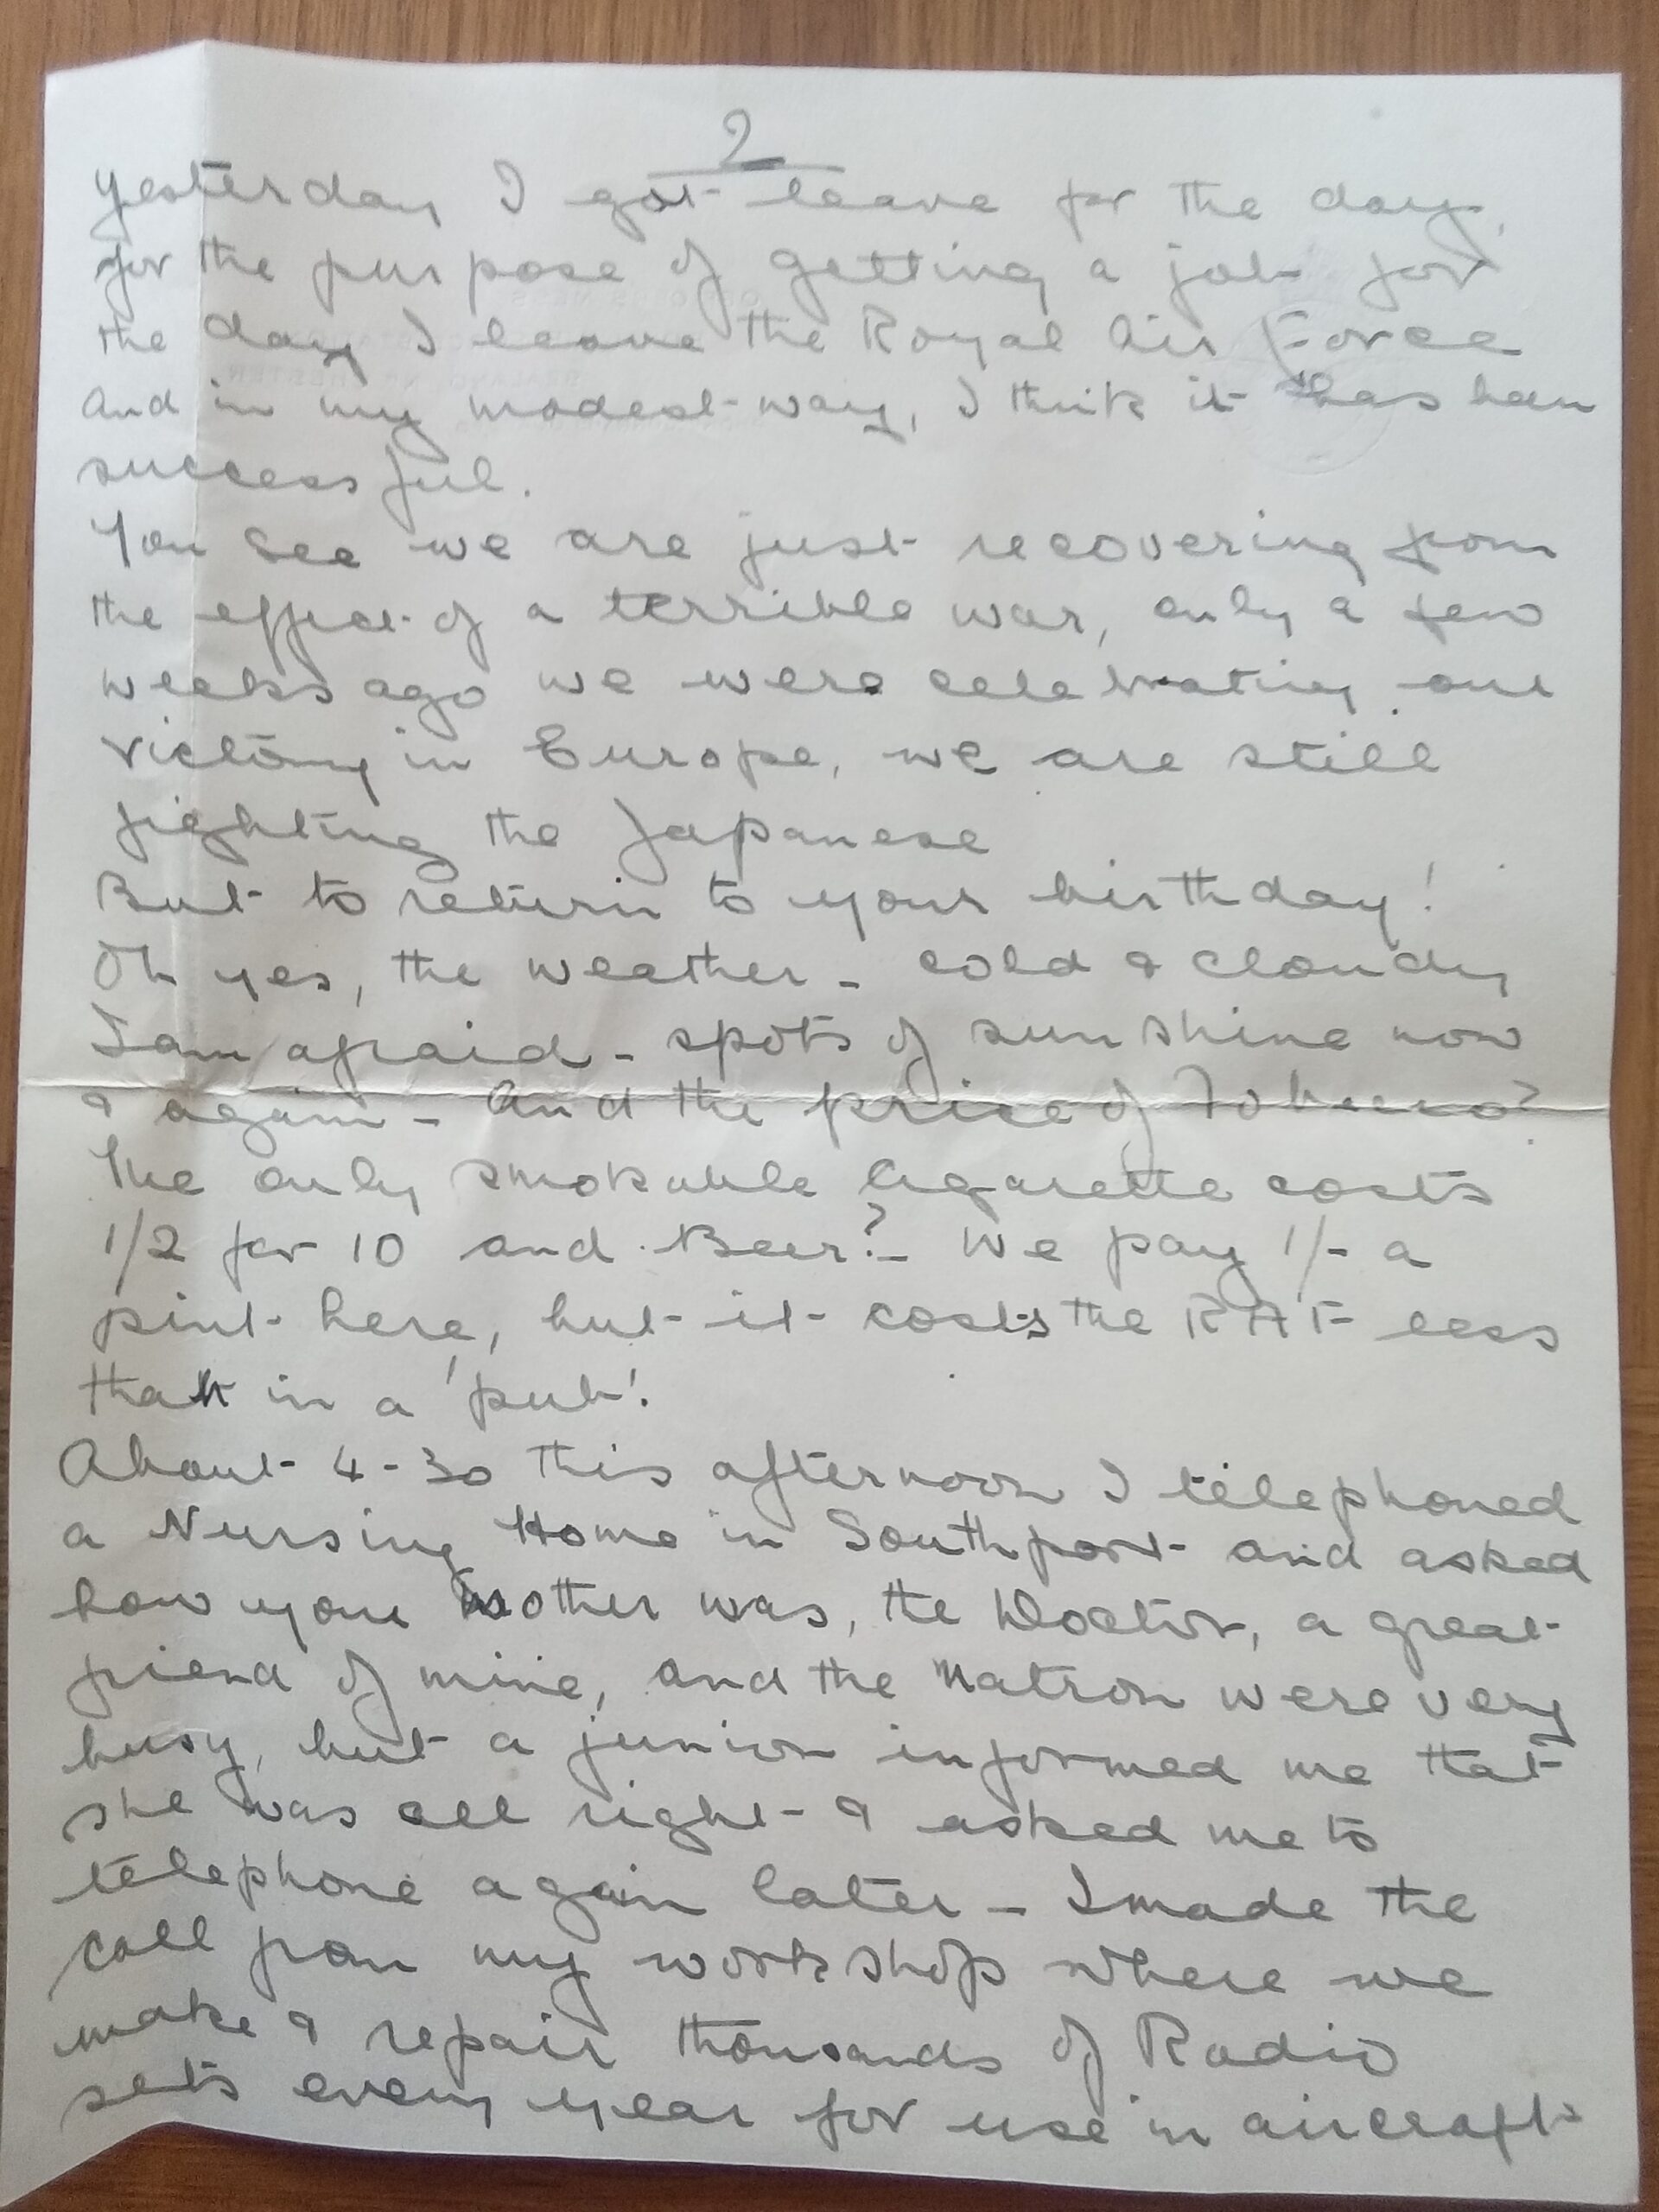 2
yesterday I got leave for the day,
for the purpose of getting a job for
the day I leave the Royal Air Force
and in my modest way, I think it has been
successful.
You see we are just recovering from
the effect of a terrible war, only a few
weeks ago we were celebrating our
victory in Europe, we are still
fighting the Japanese
But to return to your birthday!
Oh yes, the weather - cold & cloudy
I am afraid - spots of sunshine now
& again - And the price of Tobacco?
The only smokable cigarette costs
1/2 for 10 and Beer? - We pay 1/- a
pint here, but it costs the RAF less
than in a 'pub'.
About 4-30 this afternoon I telephoned
a Nursing Home in Southport and asked
how your Mother was, the Doctor, a great
friend of mine, and the Matron were very
busy, but a junior informed me that
she was all right & asked me to
telephone again later - I made the
call from my workshop where we
make & repair thousands of Radio
sets every year for use in aircraft